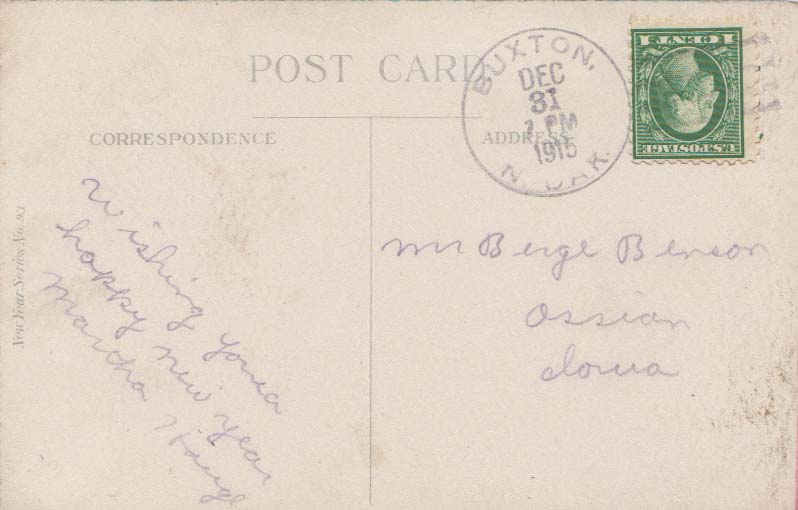 POST CARD
CORRESPONDENCE
ADDRESS
BUXTON,
DEC
31
1 PM
1915
N. DAK.
1 CENT 1
U.S. POSTAGE
New Year Series No. 93
Wishing you a
happy new year
Martha Haug
Mr Berge Benson
Ossian
Iowa